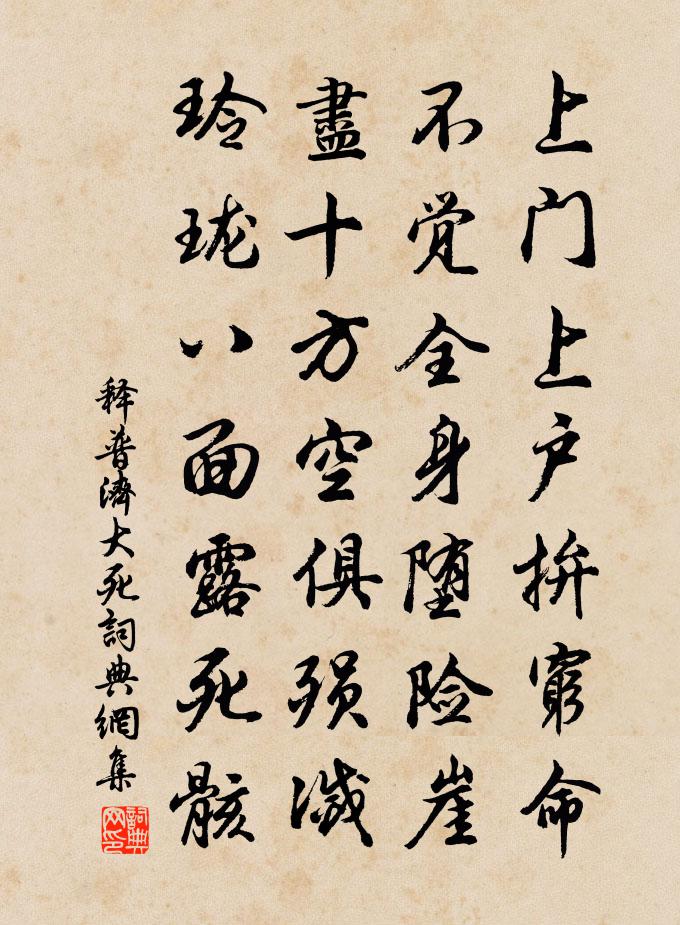 上门上户拚窮命
不觉全身堕险崖
盡十方空俱殒滅
玲珑八面露死骸
释普濟大死詞典網集
詞典网印